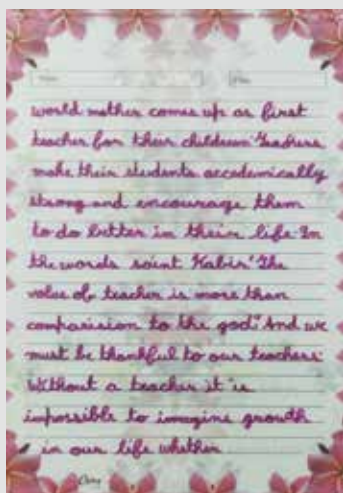 world mother comes up as first
teacher for their children Teachers
make their students accademically
strong and encourage them
to do better in their life. In
the words saint Kabir "The
value of teacher is more than
comparision to the god." And we
must be thankful to our teachers.
Without a teacher it is
impossible to imagine growth
in our life whether